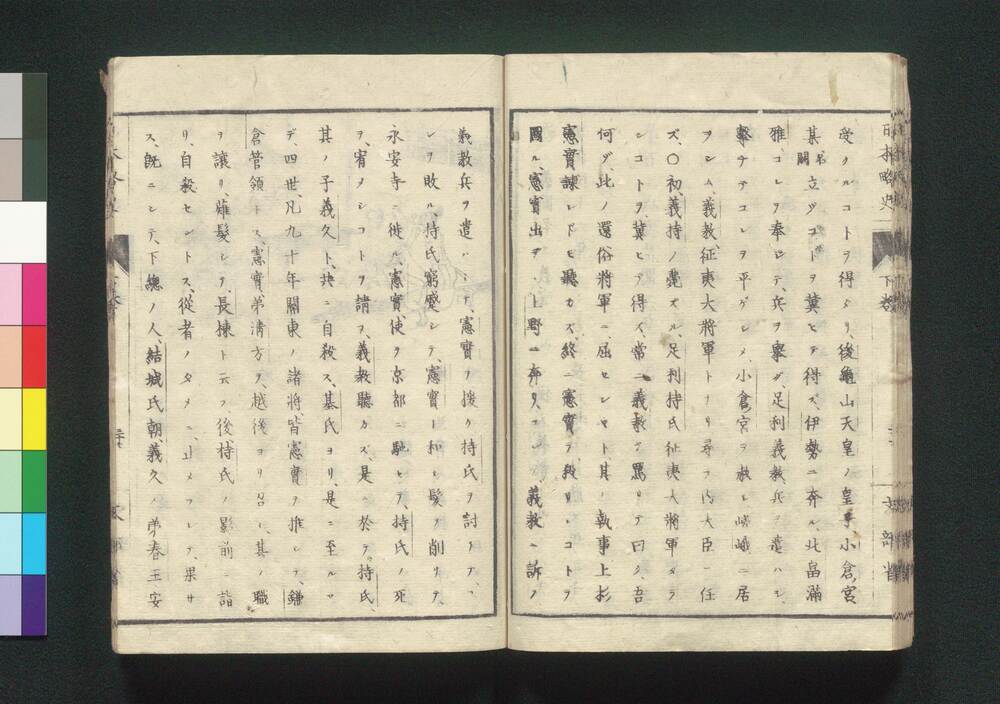 受クルコトヲ得タリ、後龜山天皇ノ皇子、小倉宮
某名闕立ヅコトヲ冀ヒテ得ズ、伊勢ニ奔ル、北畠滿
雅、コレヲ奉ジテ、兵ヲ擧グ、足利義教兵ヲ遣ハシ、
撃チテコレヲ平ゲシメ、小倉宮ヲ赦シ嵯峨ニ居
ヲシム、義教、征夷大將軍トナリ尋テ内大臣ニ任
ズ、〇初、義持ノ薨ズル、足利持氏征夷大將軍タラ
ンコトヲ、冀ヒテ得ズ、常ニ義教ヲ罵リテ曰ク、吾
何ゾ此ノ還俗將軍ニ屈センヤト、其ノ執事上杉
憲實諫レドモ聽カズ、終ニ憲實ヲ殺サンコトヲ
圖ル、憲實出デ、上野ニ奔リ、義教ニ訴フ
義教兵ヲ遣ハシテ、憲實ヲ援ク持氏ヲ討チテ、
シヲ敗ル、持氏窮蹙シテ、憲實ト和シ髮ヲ削リテ、
永安寺ニ徙ル、憲實、使ヲ京都ニ馳セテ、持氏ノ死
ヲ、宥メンコトヲ請フ、義教聽カズ、是ニ於テ、持氏、
其ノ子義久ト、共ニ自殺ス、基氏ヨリ、是ニ至ルマ
デ、四世、凡九十年關東ノ諸將皆憲實ヲ推シテ、鎌
倉管領トス、憲實弟清方ヲ、越後ヨリ召シ、其ノ職
ヲ讓リ、薙髮シテ、長棟ト云フ後、持氏ノ影前ニ詣
リ、自殺セントス、從者ノタメニ、止メラレテ、果サ
ズ、既ニシテ、下總ノ人、結城氏朝、義久ノ弟春王、安
日本略史 下卷
文部省